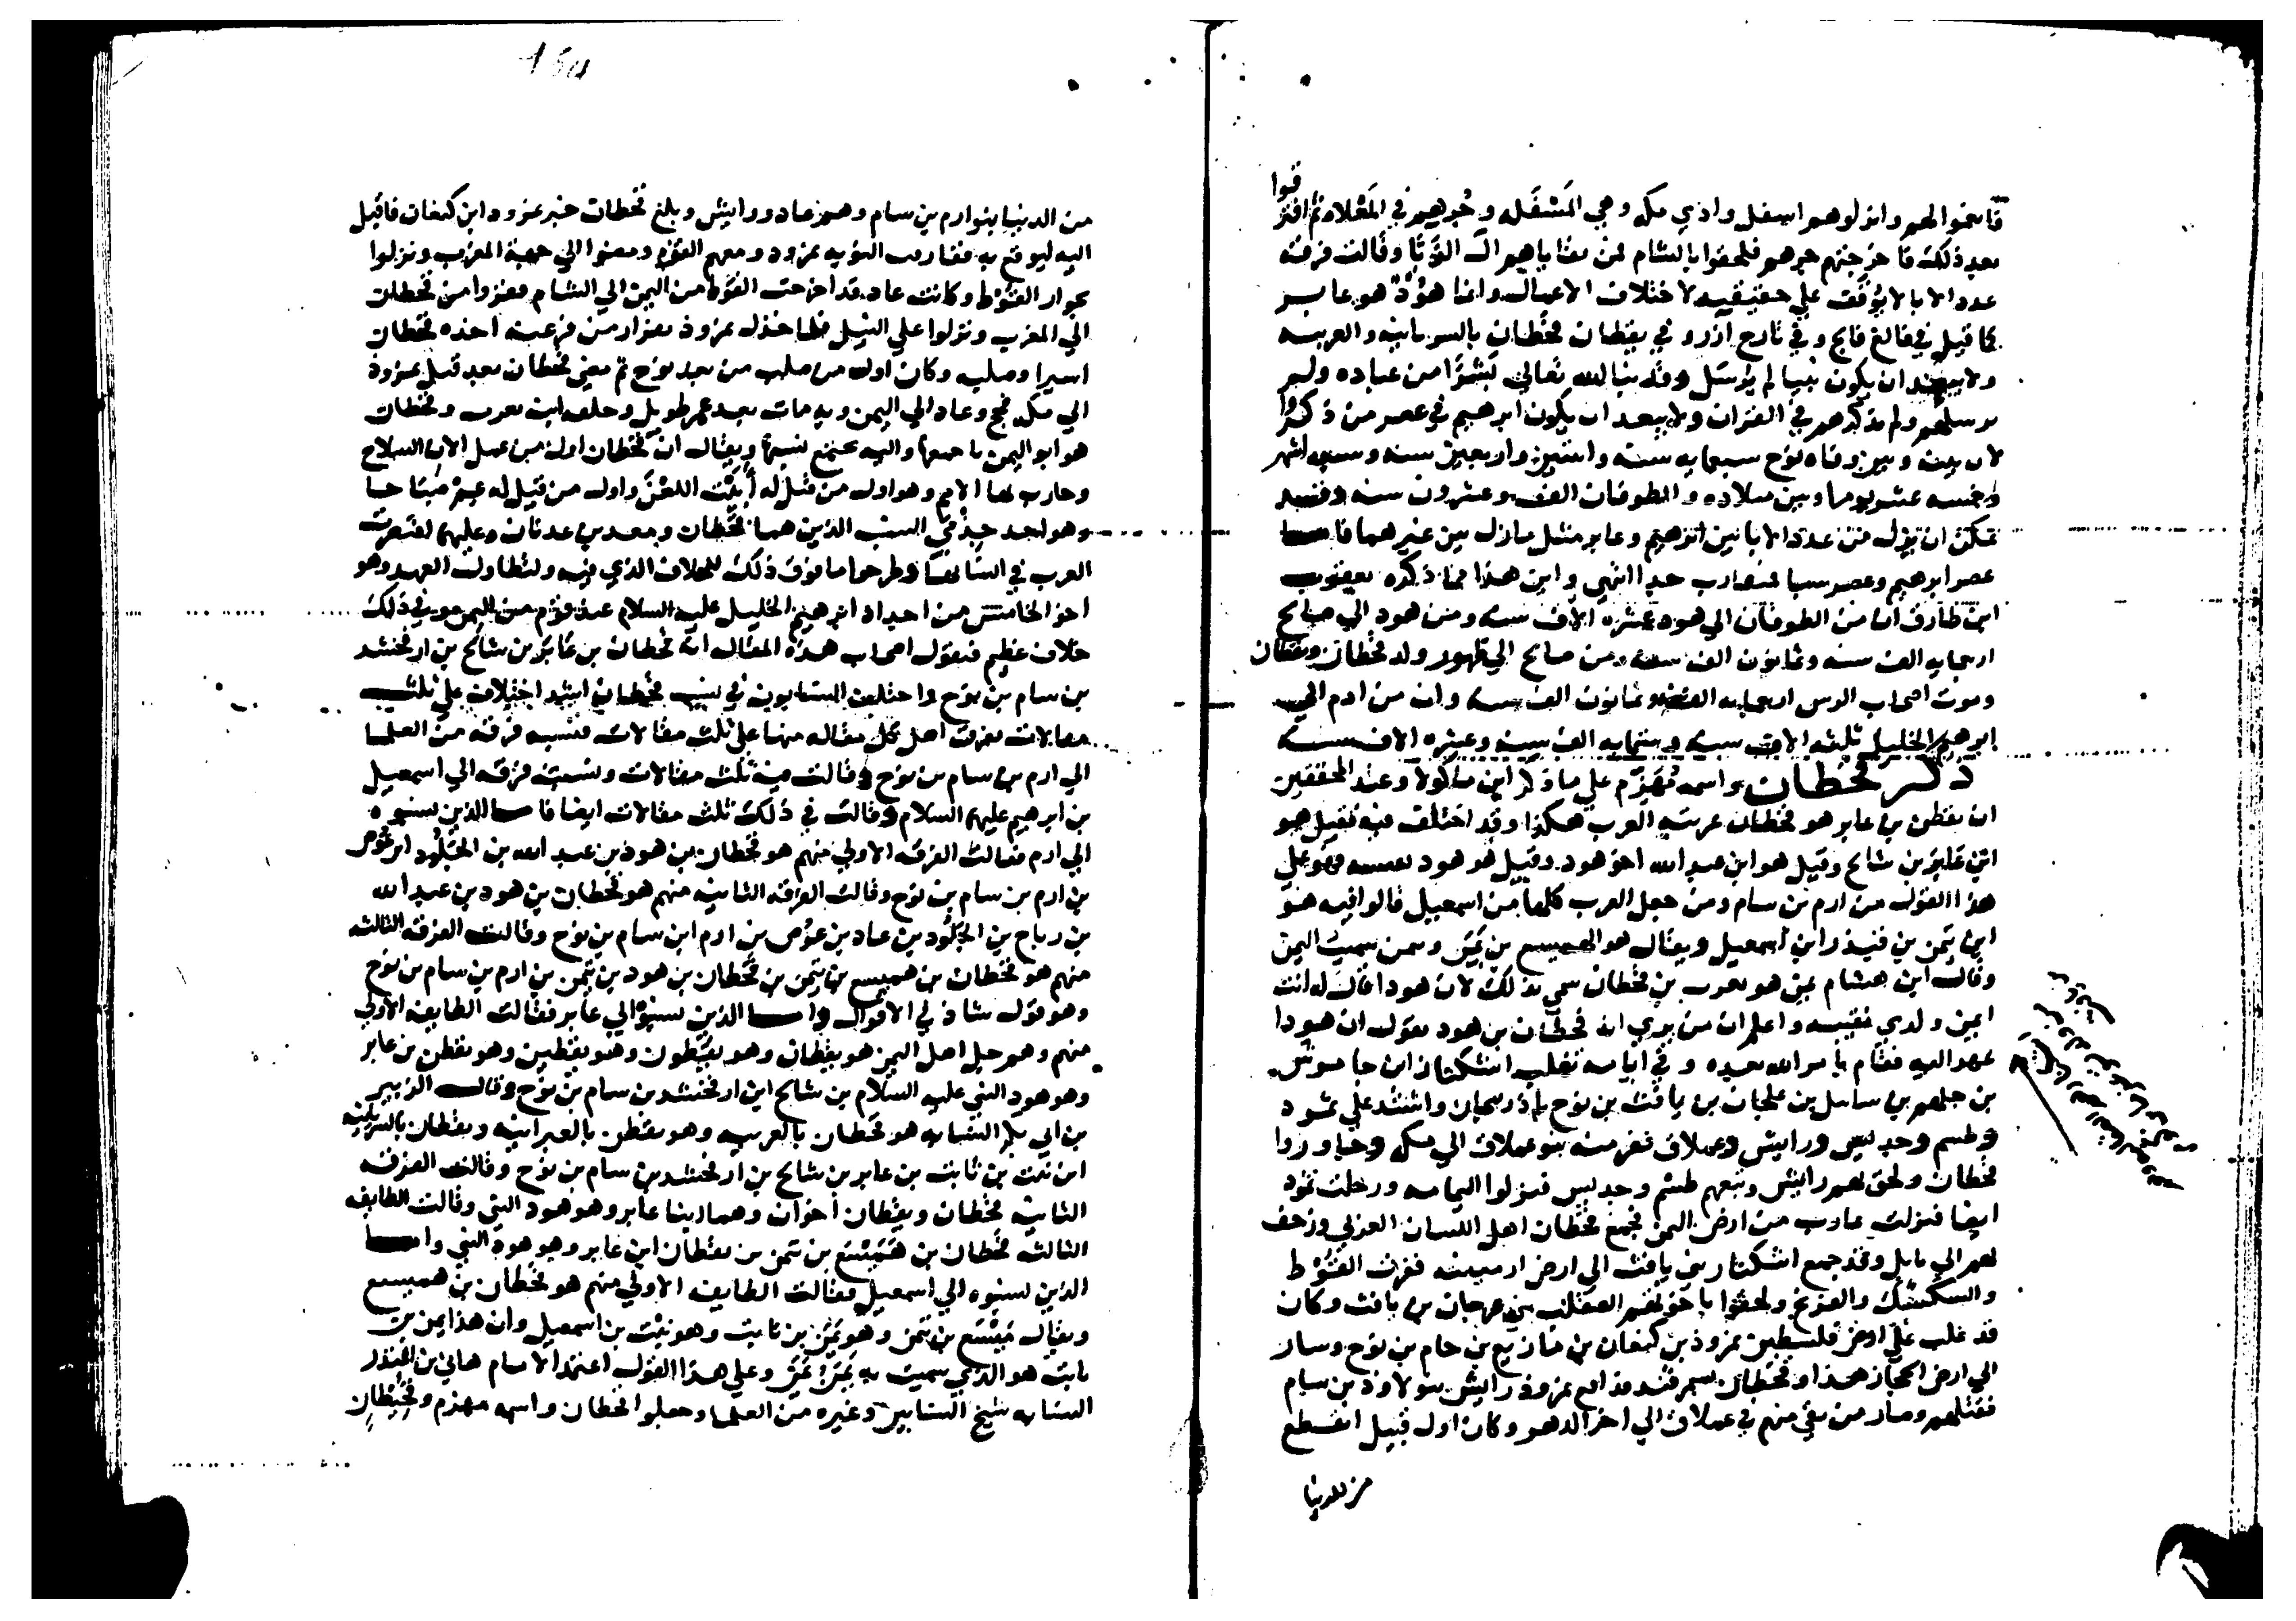 فانضموا اليهم وانزلوهم اسفل وادي مكه وهي المسفله وجرهم في المعلاه ثم افترقوا
بعد ذلك فاخرجتهم جرهم فلحقوا بالشام فمن بقاياهم ال وقالت فرقه
عدد الابا لا يوقف على حقيقته لاختلاف الاعمال وانما هود هو عابر
كما قيل في فالغ فالج وفي تارح آزر وفي يقطان قحطان بالسريانيه والعربيه
ولا يبعد ان يكون نبيا لم يرسل وقد نبا الله تعالى بشرا من عباده ولم
يرسلهم ولم يذكرهم في القران ولا يبعد ان يكون ابرهيم في عصر من ذكروا
لان بينه وبين وفاه نوح سبعمايه سنه واثنين واربعين سنه وسبعه اشهر
وخمسه عشر يوما وبين ميلاده والطوفان الف وعشرون سنه
تمكن ان يكون عدد الابا بين ابرهيم وعابر مثل مازاد بين غيرهما فاما
عصر ابرهيم وعصر سبا فتقارب جدا انتهى واين هذا مما ذكره يعقوب
ابن طارق ان من الطوفان الى هود عشره الاف سنه ومن هود الى صالح
اربعمايه الف سنه وثمانون الف سنه ومن صالح الى ظهور ولد قحطان
وموت اصحاب الرس اربعمايه الف وثمانون الف سنه وان من ادم الى
ابرهيم الخليل ثلثه الاف سنه وستمايه الف سنه وعشره الاف سنه
ذكر قحطان واسمه مهزم على ما ذكر ابن ماكولا وعند المحققين
ان يقطن بن عابر هو قحطان عربته العرب هكذا وقد اختلف فيه فقيل هو
ابن عابر بن شالخ وقيل هو ابن عبد الله اخو هود وقيل هو هود نفسه فهو على
هذا القول من ارم بن سام ومن جعل العرب كلها من اسمعيل قالوا فيه هو
ابن تيمن بن قيذر ابن اسمعيل ويقال هو الهميسع بن يمن وبيمن سميت اليمن
وقال ابن هشام يمن هو يعرب بن قحطان سمي بذلك لان هودا قال له انت
ايمن ولدي نقيبه واعلم ان من يرى ان قحطان بن هود يقول ان هودا
عهد اليه فقام بامر الله بعده وفي ايامه تغلب اشكتار ابن جاموش
بن جلهم بن بن علجان بن يافث بن نوح باذربيجان واشتد على ثمود
وطسم وجديس ورايش وعملاق ففر منه بنو عملاق الى مكه وجاوروا
قحطان ولحق بهم رايش وتبعهم طسم وجديس فنزلوا اليمامه ورحلت ثمود
ايضا فنزلت مارب من ارض اليمن فجمع قحطان اهل اللسان العربي وزحف
بهم الى بابل وقد جمع اشكتار بني يافث الى ارض ارمينيه ففرت القوط
والسكسك والفرنج ولحقوا باخوتهم الصقلب بن مهجان بن يافث وكان
قد غلب على ارض فلسطين نمرود بن كنعان بن مازيع بن حام بن نوح وسار
الى ارض الحجاز هذا وقحطان فدافع نمرود رايش بنو لاوذ بن سام
فقتلهم وصار من بقي منهم في عملاق الى اخر الدهر وكان اول قبيل انقطع
من الدنيا
من الدنيا بنو ارم بن سام وهم عاد ورايش وبلغ قحطان خبر نمرود ابن كنعان فاقبل
اليه ليوقع به فقارب النوبه نمرود ومعهم القوم ومضوا الى جهة المغرب ونزلوا
بجوار القوط وكانت عاد قد اخرجت القوط من اليمن الى الشام ففروا من قحطان
الى المغرب ونزلوا على النيل فلما خذل نمرود بفرار من فر عنه اخذه قحطان
اسيرا وصلبه وكان اول من صلب من بعد نوح ثم مضى قحطان بعد قتل نمرود
الى مكه فحج وعاد الى اليمن وبه مات بعد عمر طويل وخلف ابنه يعرب وقحطان
هو ابو اليمن باجمعها واليه يجتمع نسبها ويقال ان قحطان اول من عمل الات السلاح
وحارب بها الامم وهو اول من قيل له أبيت اللعن واول من قيل له عم صباحا
وهو احد جذمي النسب الذين هما قحطان ومعد بن عدنان وعليهما اقتصرت
العرب في انسابها وطرحوا ما فوق ذلك للخلاف الذي فيه ولتطاول العهد وهو
اخو الخامس من اجداد ابرهيم الخليل عليه السلام عند قوم من اليمن وفي ذلك
خلاف عظيم فيقول اصحاب هذه المقاله انه قحطان بن عابر بن شالخ بن ارفخشد
بن سام بن نوح واختلف النسابون في نسب قحطان اشد اختلاف على ثلث
مقالات تفرق اهل كل مقاله منها على ثلث مقالات فنسبه فرقه من العلما
الى ارم بن سام بن نوح وقالت فيه ثلث مقالات ونسبته فرقه الى اسمعيل
بن ابرهيم عليهما السلام وقالت في ذلك ثلث مقالات ايضا فاما الذين نسبوه
الى ارم فقالت الفرقه الاولى منهم هو قحطان بن هود بن عبد الله بن الجلود ابن عوص
بن ارم بن سام بن نوح وقالت الفرقه الثانيه منهم هو قحطان بن هود بن عبد الله
بن رباح بن الجلود بن عاد بن عوص بن ارم ابن سام بن نوح وقالت الفرقه الثالثه
منهم هو قحطان بن هميسع بن تيمن بن قحطان بن هود بن تيمن بن ارم بن سام بن نوح
وهو قول شاذ في الاقوال واما الذين نسبوه الى عابر فقالت الطايفه الاولى
منهم وهم جل اهل اليمن هو يقطان وهو يقيطون وهو يقطين وهو يقطن بن عابر
وهو هود النبي عليه السلام بن شالخ ابن ارفخشد بن سام بن نوح وقال الزبير
بن ابي بكر النسابه هو قحطان بالعربيه وهو يقطن بالعبرانيه ويقطان بالسريانيه
ابن نبت بن ثابت بن عابر بن شالخ بن ارفخشد بن سام بن نوح وقالت الفرقه
الثانيه قحطان ويقطان أخوان وهما ابنا عابر وهو هود النبي وقالت الطايفه
الثالثه قحطان بن هميسع بن تيمن بن يقطان ابن عابر وهو هود النبي واما
الذين نسبوه الى اسمعيل فقالت الطايفه الاولى منهم هو قحطان بن هميسع
ويقال مبتسع بن تيمن وهو يمن بن نابت وهو نبت بن اسمعيل وان هذا يمن بن
نابت هو الذي سميت به يمن وعلى هذا القول اعتمد الامام هاني بن المنذر
النسابه شيخ النسابين وغيره من العلما وجعلوا قحطان واسمه مهزم وقحيطان